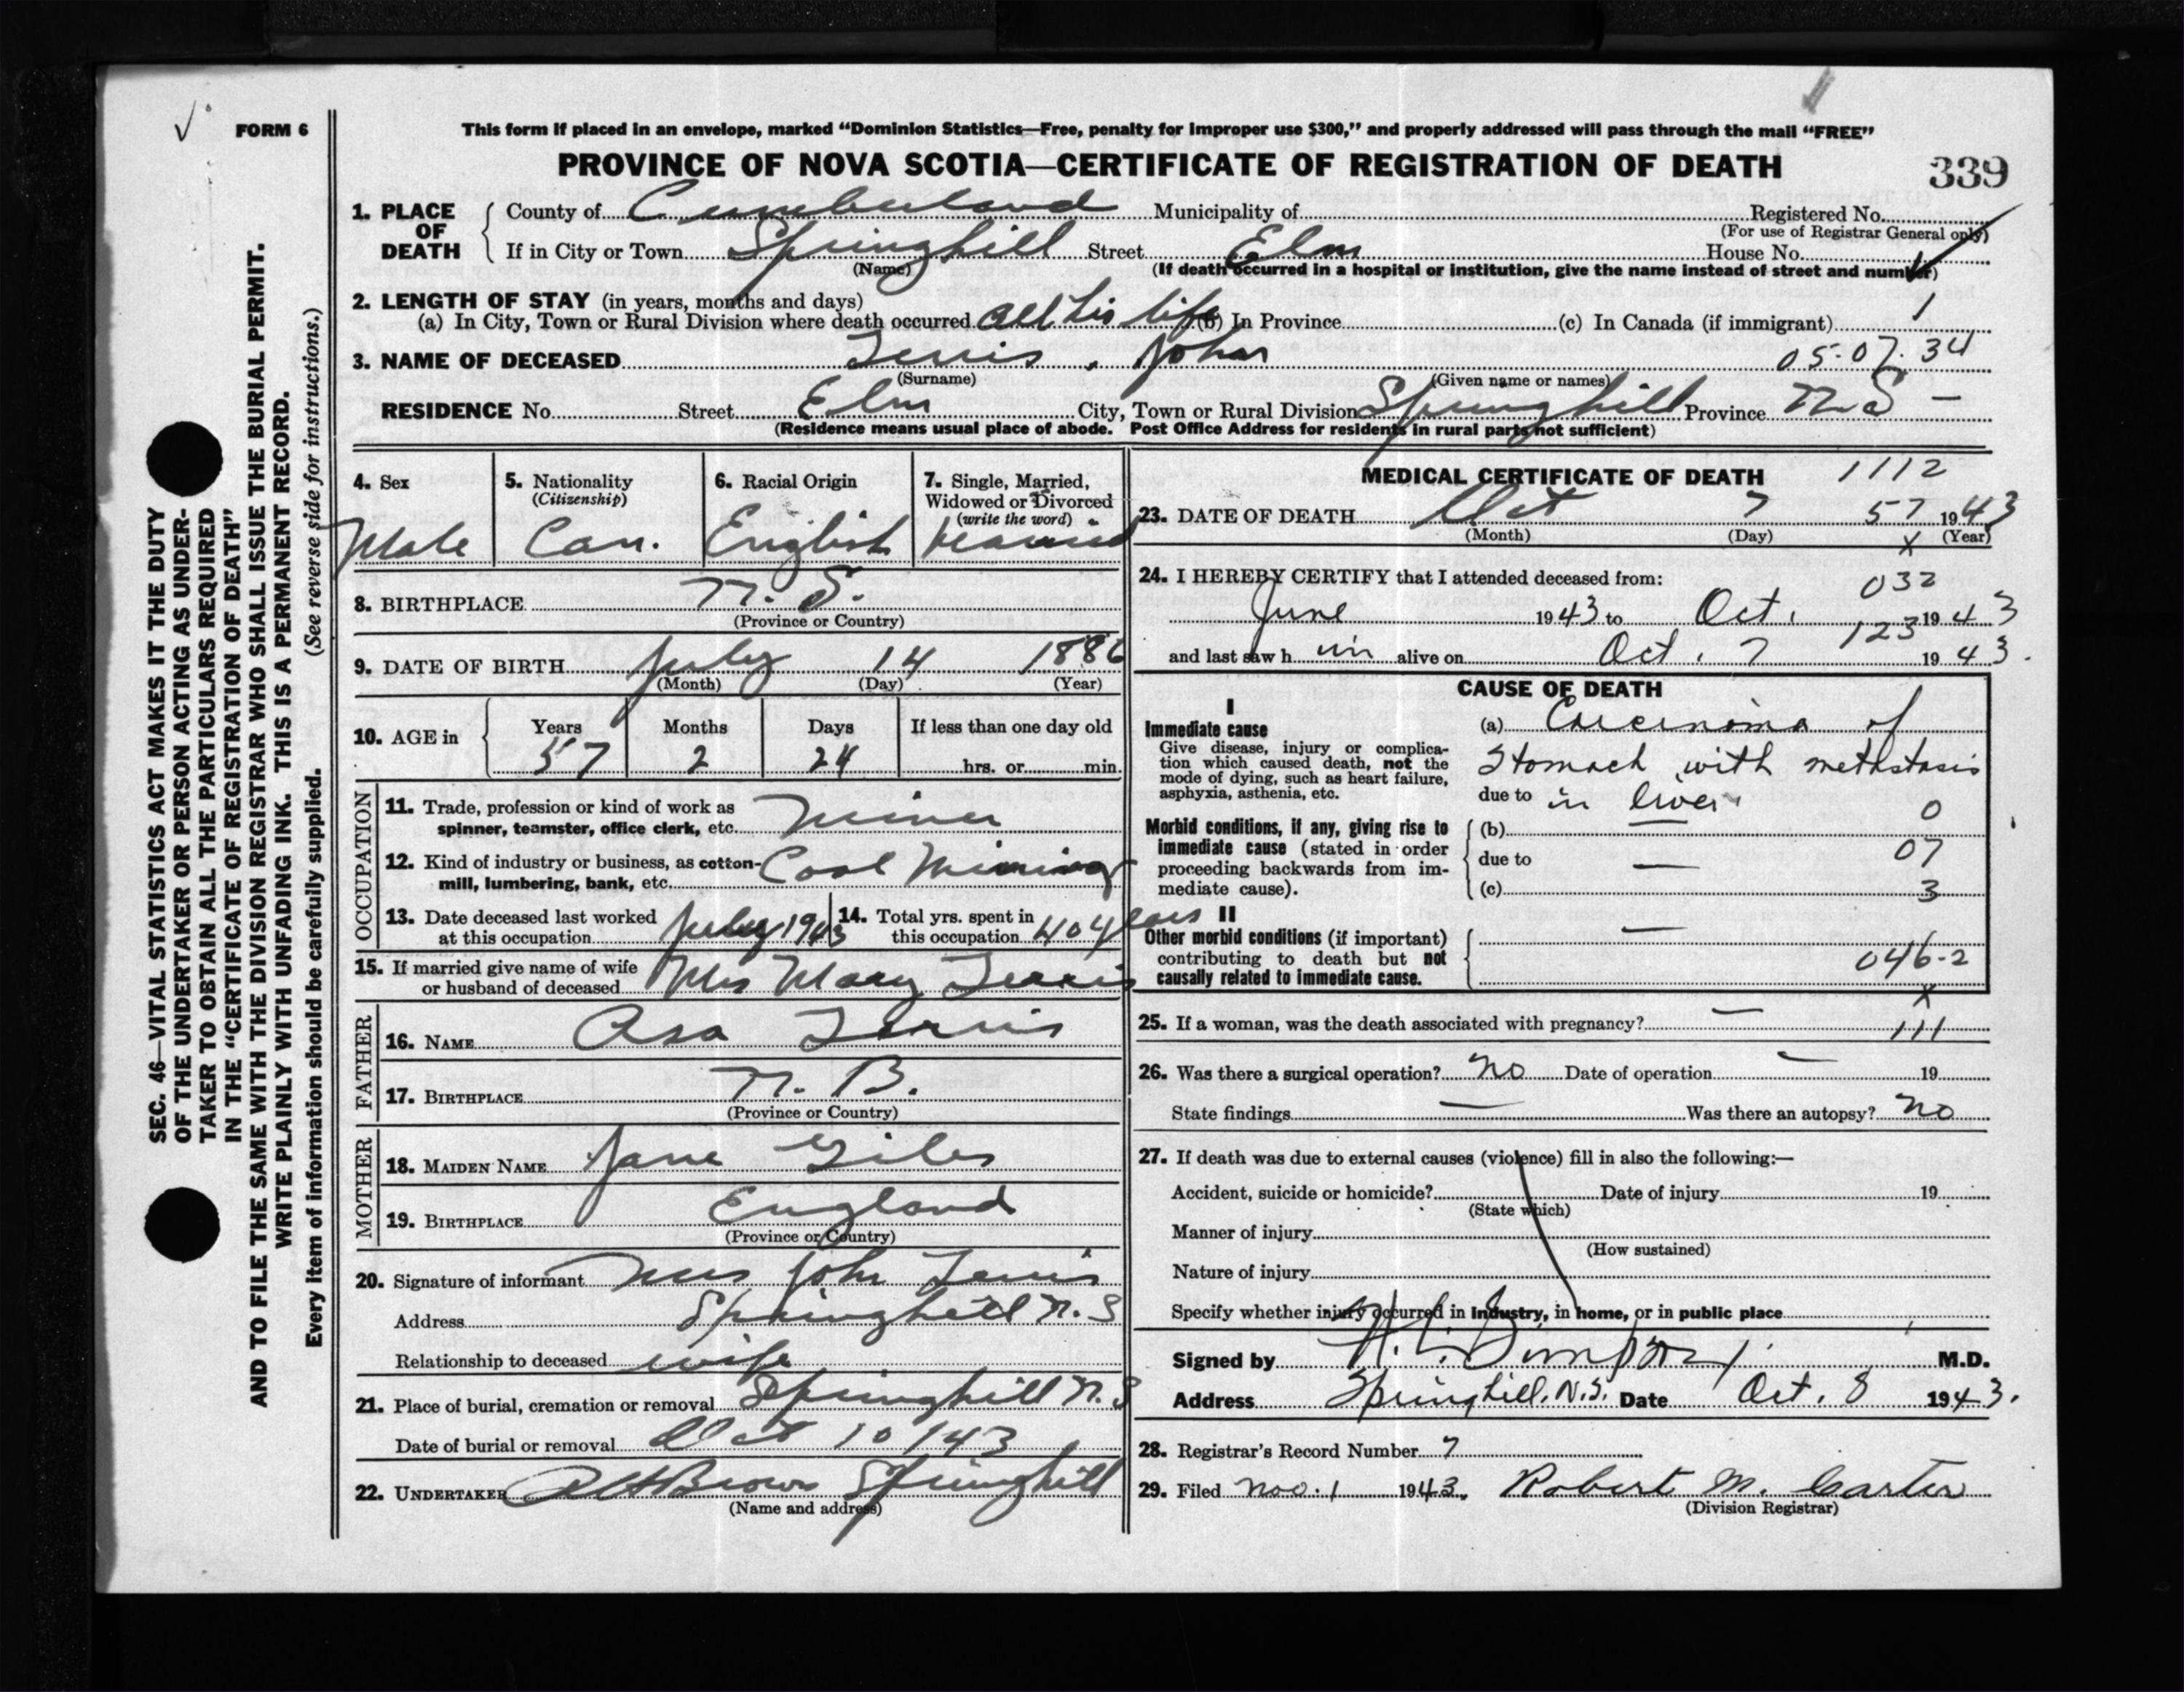 FORM 6
This form if placed in an envelope, marked "Dominion Statistics—Free, penalty for improper use $300," and properly addressed will pass through the mail "FREE"
PROVINCE OF NOVA SCOTIA—CERTIFICATE OF REGISTRATION OF DEATH
339
1. PLACE OF DEATH
County of Cumberland Municipality of Registered No.
(For use of Registrar General only)
If in City or Town Springhill Street Elm House No.
(Name) (If death occurred in a hospital or institution, give the name instead of street and number)
2. LENGTH OF STAY (in years, months and days)
(a) In City, Town or Rural Division where death occurred all his life (b) In Province (c) In Canada (if immigrant) 1
3. NAME OF DECEASED John 05-07-34
(Surname) (Given name or names)
RESIDENCE No. Street Elm City, Town or Rural Division Springhill Province N.S –
(Residence means usual place of abode. Post Office Address for residents in rural parts not sufficient)
4. Sex
Male
5. Nationality
(Citizenship)
Can.
6. Racial Origin
English
7. Single, Married,
Widowed or Divorced
(write the word)
Married
8. BIRTHPLACE N.S.
(Province or Country)
9. DATE OF BIRTH July 14 1886
(Month) (Day) (Year)
10. AGE in
Years Months Days If less than one day old
57 2 24 hrs. or min.
OCCUPATION
11. Trade, profession or kind of work as
spinner, teamster, office clerk, etc. Miner
12. Kind of industry or business, as cotton-
mill, lumbering, bank, etc. Coal Mining
13. Date deceased last worked
at this occupation July 1943
14. Total yrs. spent in
this occupation 40 years
15. If married give name of wife
or husband of deceased Mrs Mary
FATHER
16. NAME Asa
17. BIRTHPLACE N. B.
(Province or Country)
MOTHER
18. MAIDEN NAME Jane Giles
19. BIRTHPLACE England
(Province or Country)
20. Signature of informant Mrs John
Address Springhill N.S
Relationship to deceased wife
21. Place of burial, cremation or removal Springhill N.S
Date of burial or removal Oct 10/43
22. UNDERTAKER Brown Springhill
(Name and address)
MEDICAL CERTIFICATE OF DEATH 1112
23. DATE OF DEATH Oct 7 57 1943
(Month) (Day) x (Year)
24. I HEREBY CERTIFY that I attended deceased from: 032
June 1943 to Oct. 1943
123
and last saw him alive on Oct. 7 1943.
CAUSE OF DEATH
I
Immediate cause
Give disease, injury or complica-
tion which caused death, not the
mode of dying, such as heart failure,
asphyxia, asthenia, etc.
(a) Carcinoma of
Stomach with methstasis
due to in liver
0
Morbid conditions, if any, giving rise to
immediate cause (stated in order
proceeding backwards from im-
mediate cause).
(b) —
due to — 07
(c) 3
II
Other morbid conditions (if important)
contributing to death but not
causally related to immediate cause.
—
046-2
x
25. If a woman, was the death associated with pregnancy? — 111
26. Was there a surgical operation? No Date of operation — 19
State findings — Was there an autopsy? No
27. If death was due to external causes (violence) fill in also the following:—
Accident, suicide or homicide? Date of injury 19
(State which)
Manner of injury
(How sustained)
Nature of injury
Specify whether injury occurred in industry, in home, or in public place
Signed by M.D.
Address Springhill, N.S. Date Oct. 8 1943.
28. Registrar's Record Number 7
29. Filed Nov. 1 1943. Robert M. Carter
(Division Registrar)
SEC. 46—VITAL STATISTICS ACT MAKES IT THE DUTY
OF THE UNDERTAKER OR PERSON ACTING AS UNDER-
TAKER TO OBTAIN ALL THE PARTICULARS REQUIRED
IN THE "CERTIFICATE OF REGISTRATION OF DEATH"
AND TO FILE THE SAME WITH THE DIVISION REGISTRAR WHO SHALL ISSUE THE BURIAL PERMIT.
WRITE PLAINLY WITH UNFADING INK. THIS IS A PERMANENT RECORD.
Every item of information should be carefully supplied. (See reverse side for instructions.)